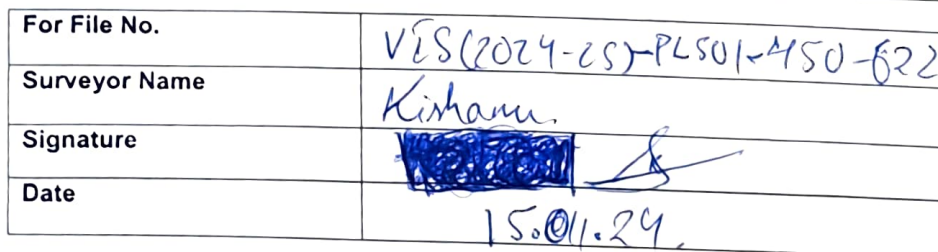 For File No. VIS(2024-25)-PL501-450-622
Surveyor Name
Signature
Date 15.01.24